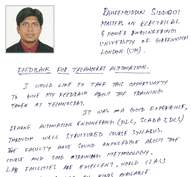 RAHEEMODDIN SIDDIQI
MASTERS IN ELECTRICAL
& POWER ENGINEERING
UNIVERSITY OF GREENWICH
LONDON (UK).
FEEDBACK FOR TECHNOCRAT AUTOMATION.
I WOULD LIKE TO TAKE THIS OPPORTUNITY
TO GIVE MY FEEDBACK ABOUT THE TRAINING
TAKEN AT TECHNOCRAT.
IT WAS A GOOD EXPERIENCE,
LEARNT AUTOMATION ENGINEERING (PLC, SCADA & DCS)
THROUGH WELL STRUCTURED COURSE SYLLABUS.
THE FACULTY HAVE SOUND KNOWLEDGE ABOUT THE
COURSE AND GOOD METHODOLOGY.
LAB FACILITIES ARE EXCELLENT, WORLD CLASS
AVAILABLE.